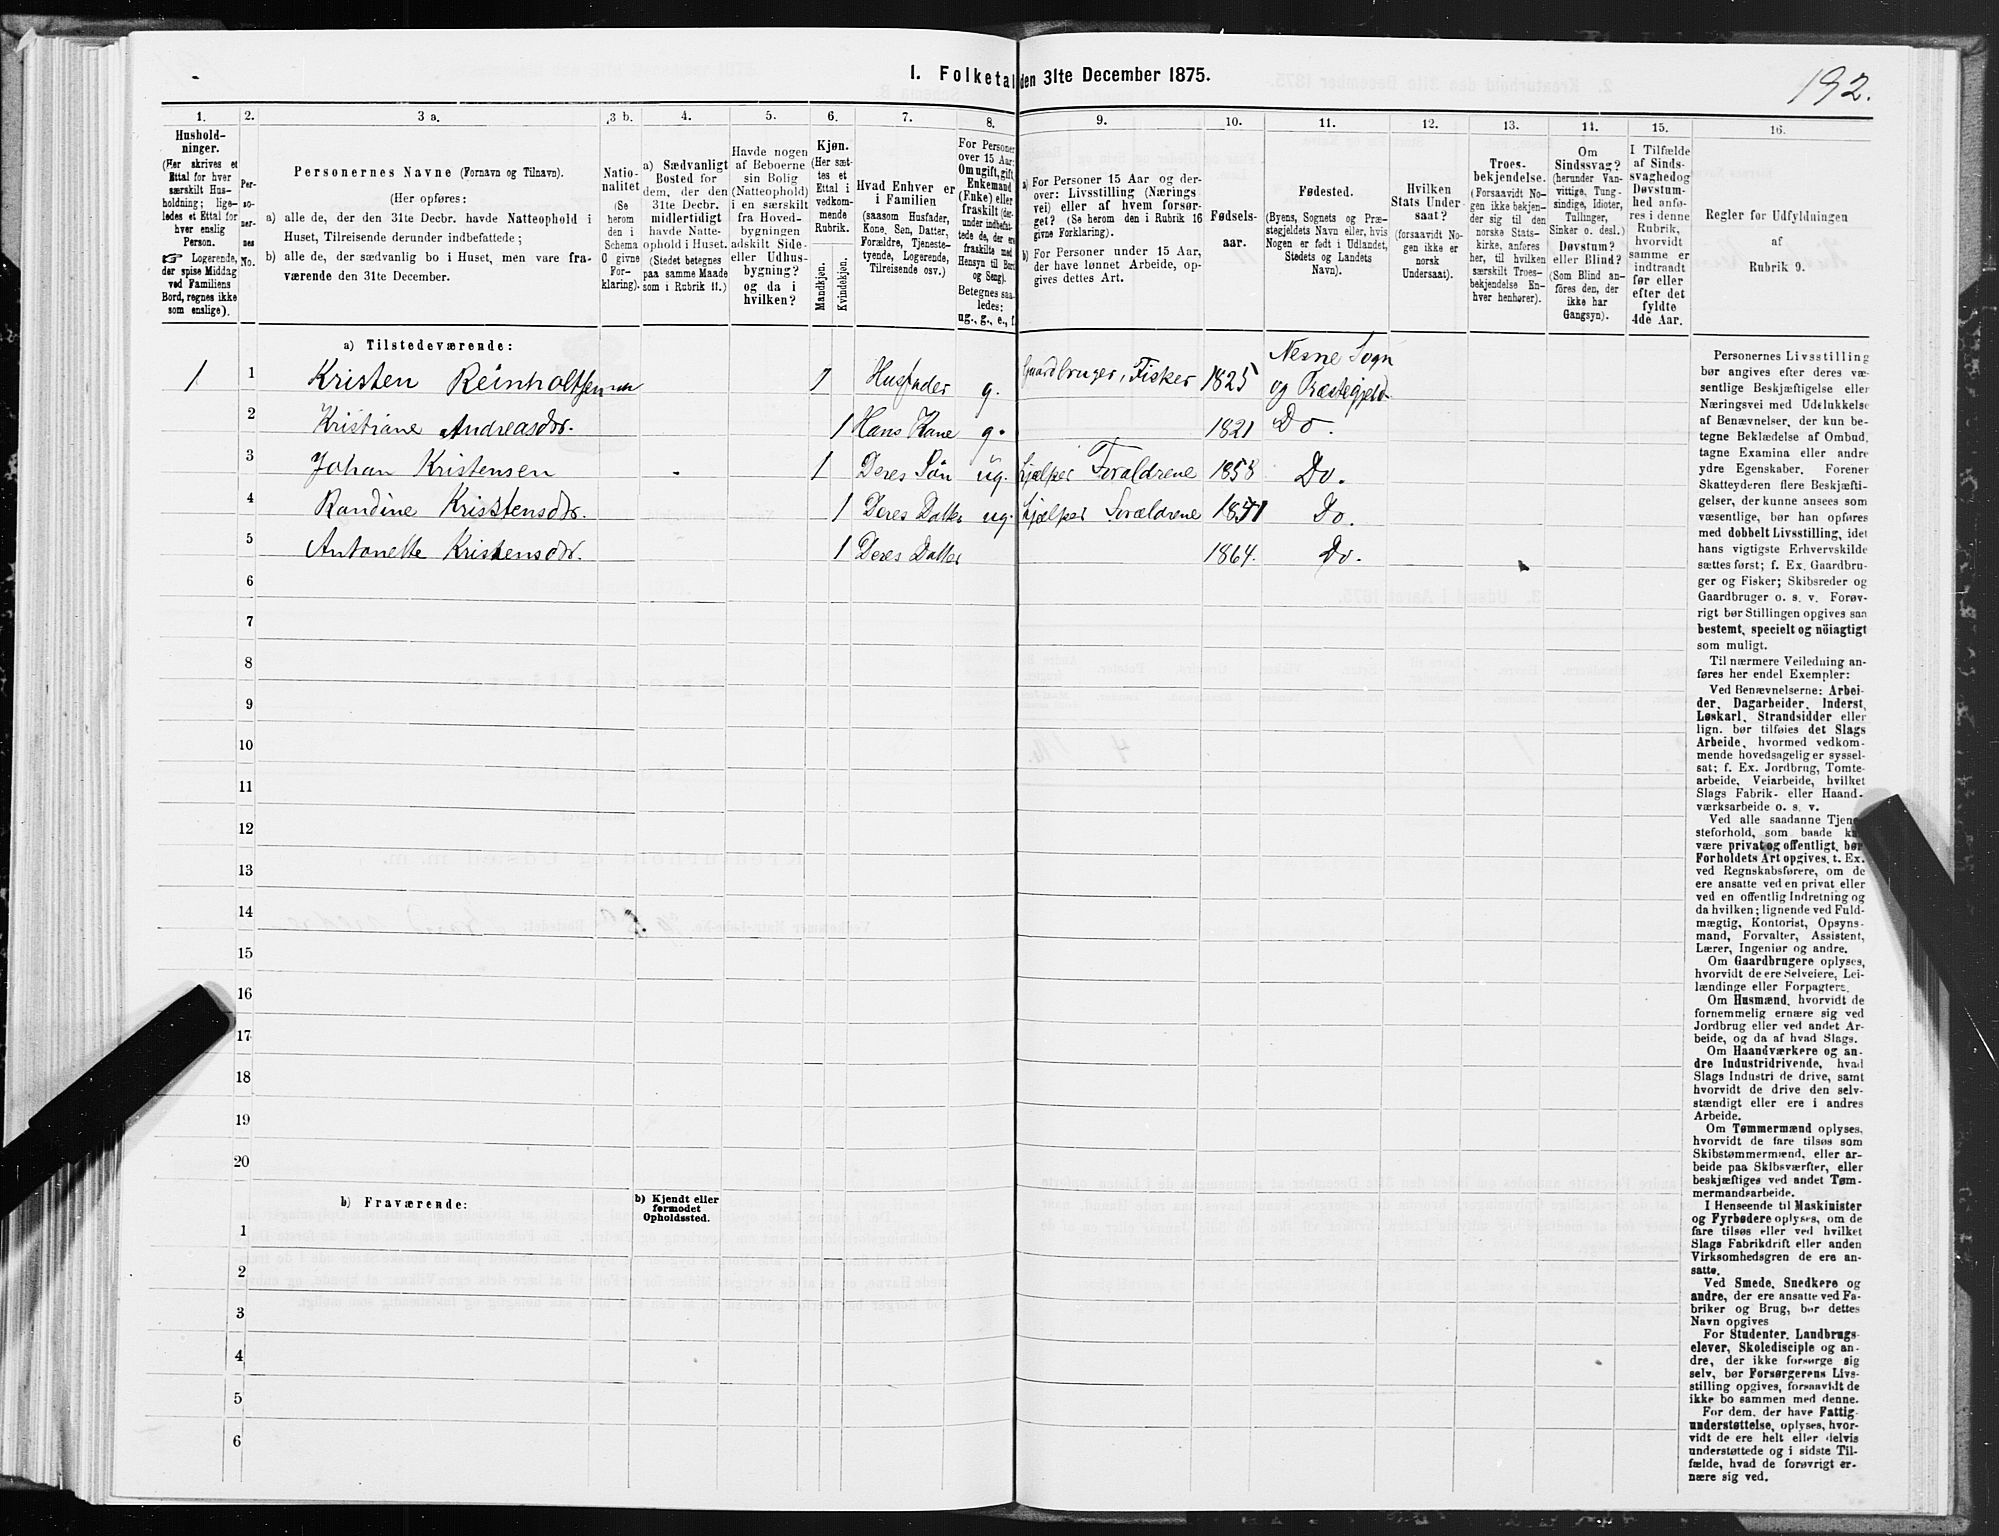 1. Folketal den 31te December 1875.
192.
1.
2.
3 a.
3 b.
4.
5.
6.
7.
8.
9.
10.
11.
12.
13.
14.
15.
16.
Hushold-
ninger.
(Her skrives et
Ettal for hver
særskilt Hus-
holdning; lige-
ledes et Ettal for
hver enslig
Person.
Logerende,
der spise Middag
ved Familiens
Bord, regnes ikke
som enslige).
Per-
so-
ner-
nes
No.
Personernes Navne (Fornavn og Tilnavn).
(Her opføres:
a) alle de, der den 31te Decbr. havde Natteophold i
Huset, Tilreisende derunder indbefattede;
b) alle de, der sædvanlig bo i Huset, men vare fra-
værende den 31te December.
Natio-
nalitet
(Se
herom
den i
Schema
O givne
For-
klaring).
a) Sædvanligt
Bosted for
dem, der den
31te Decbr.
midlertidigt
havde Natte-
ophold i Huset.
(Stedet betegnes
paa samme Maade
som i Rubrik 11.)
Havde nogen
af Beboerne
sin Bolig
(Natteophold)
i en særskilt
fra Hoved-
bygningen
adskilt Side-
eller Udhus-
bygning?
og da i
hvilken?
Kjøn.
(Her sæt-
tes et
Ettal i
vedkom-
mende
Rubrik.
Mandkjøn.
Kvindekjøn.
Hvad Enhver er
i Familien
(saasom Husfader,
Kone, Søn, Datter,
Forældre, Tjeneste-
tyende, Logerende,
Tilreisende osv.)
For Personer
over 15 Aar:
Om ugift, gift,
Enkemand
(Enke) eller
fraskilt (der-
under indbefat-
tede de, der ere
fraskilte med
Hensyn til Bord
og Seng).
Betegnes saa-
ledes:
ug., g., e., f.
a) For Personer 15 Aar og der-
over: Livsstilling (Nærings-
vei) eller af hvem forsør-
get? (Se herom den i Rubrik 16
givne Forklaring).
b) For Personer under 15 Aar,
der have lønnet Arbeide, op-
gives dettes Art.
Fødsels-
aar.
Fødested.
(Byens, Sognets og Præ-
stegjeldets Navn eller, hvis
Nogen er født i Udlandet,
Stedets og Landets
Navn).
Hvilken
Stats Under-
saat?
(forsaavidt No-
gen ikke er
norsk
Undersaat).
Troes-
bekjendelse.
(Forsaavidt No-
gen ikke bekjen-
der sig til den
norske Stats-
kirke, anføres
her, til hvilken
særskilt Troes-
bekjendelse En-
hver henhører).
Om
Sindssvag?
(herunder Van-
vittige, Tung-
sindige, Idioter,
Tullinger,
Sinker o. desl.)
Døvstum?
eller Blind?
(Som Blind an-
føres den, der
ikke har
Gangsyn).
I Tilfælde
af Sinds-
svaghed og
Døvstum-
hed anfø-
res i denne
Rubrik,
hvorvidt
samme er
indtraadt
før eller
efter det
fyldte
4de Aar.
Regler for Udfyldningen
af
Rubrik 9.
a) Tilstedeværende:
1 1 Kristen Reinholtsen 1 Husfader g. Gaardbruger, Fisker 1825 Nesne Sogn
og Præstegjeld
2 Kristiane Andreasdr. 1 Hans Kone g. 1821 Do.
3 Johan Kristensen 1 Deres Søn ug. Hjælper Forældrene 1858 Do.
4 Randine Kristensdr. 1 Deres Datter ug. Hjælper Forældrene Do.
5 Antonette Kristensdr. 1 Deres Datter 1864. Do.
6
7
8
9
10
11
12
13
14
15
16
17
18
19
20
b) Fraværende:
b) Kjendt eller
formodet
Opholdssted.
1
2
3
4
5
6
Personernes Livsstilling
bør angives efter deres væ-
sentlige Beskjæftigelse eller
Næringsvei med Udelukkelse
af Benævnelser, der kun be-
tegne Beklædelse af Ombud,
tagne Examina eller andre
ydre Egenskaber. Forener
Skatteyderen flere Beskjæfti-
gelser, der kunne ansees som
væsentlige, bør han opføres
med dobbelt Livsstilling, idet
hans vigtigste Erhvervskilde
sættes først; f. Ex. Gaardbru-
ger og Fisker; Skibsreder og
Gaardbruger o. s. v. Forøv-
rigt bør Stillingen opgives saa
bestemt, specielt og nöiagtigt
som muligt.
Til nærmere Veiledning an-
føres her endel Exempler:
Ved Benævnelserne: Arbei-
der, Dagarbeider, Inderst,
Løskarl, Strandsidder eller
lign. bør tilføies det Slags
Arbeide, hvormed vedkom-
mende hovedsagelig er syssel-
sat; f. Ex. Jordbrug, Tomte-
arbeide, Veiarbeide, hvilket
Slags Fabrik- eller Haand-
værksarbeide o. s. v.
Ved alle saadanne Tjene-
steforhold, som baade kan
være privat og offentligt, bør
Forholdets Art opgives, t. Ex.
ved Regnskabsførere, om de
ere ansatte ved en privat eller
ved en offentlig Indretning og
da hvilken; lignende ved Fuld-
mægtig, Kontorist, Opsyns-
mand, Forvalter, Assistent,
Lærer, Ingeniør og andre.
Om Gaardbrugere oplyses,
hvorvidt de ere Selveiere, Lei-
lændinge eller Forpagtere.
Om Husmænd, hvorvidt de
fornemmelig ernære sig ved
Jordbrug eller ved andet Ar-
beide, og da af hvad Slags.
Om Haandværkere og an-
dre Industridrivende, hvad
Slags Industri de drive, samt
hvorvidt de drive den selv-
stændigt eller ere i andres
Arbeide.
Om Tømmermænd oplyses,
hvorvidt de fare tilsøs som
Skibstømmermænd, eller ar-
beide paa Skibsværfter, eller
beskjæftiges ved andet Tøm-
mermandsarbeide.
I Henseende til Maskinister
og Fyrbødere oplyses, om de
fare tilsøs eller ved hvilket
Slags Fabrikdrift eller anden
Virksomhedsgren de ere an-
satte.
Ved Smede, Snedkere og
andre, der ere ansatte ved Fa-
briker og Brug, bør dettes
Navn opgives
For Studenter, Landbrugs-
elever, Skoledisciple og an-
dre, der ikke forsørge sig
selv, bør Forsørgerens Livs-
stilling opgives, forsaavidt de
ikke bo sammen med denne.
For dem, der have Fattig-
understøttelse, oplyses, hvor-
vidt de ere helt eller delvis
understøttede og i sidste Til-
fælde, hvad de forøvrigt er-
nære sig ved.